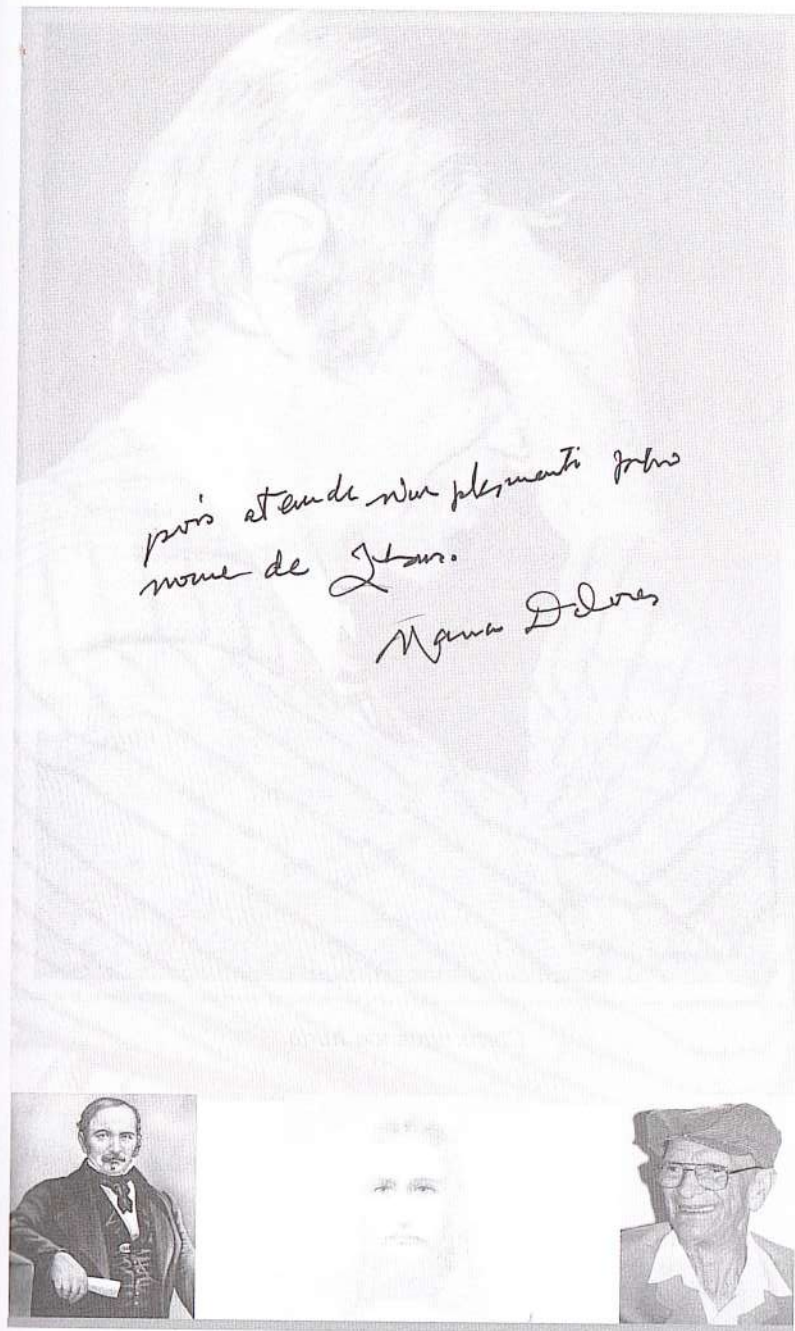 pois atende simplesmente pelo
nome de Jesus.
Maria Dolores